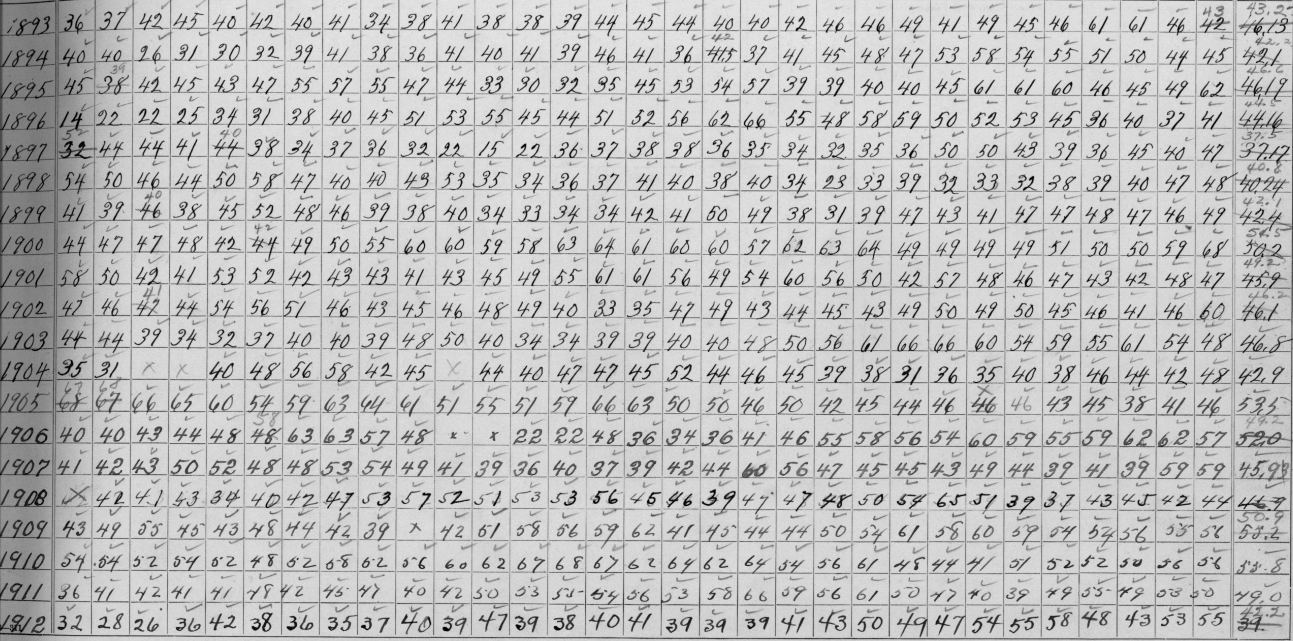 1893 36 37 42 45 40 42 40 41 34 38 41 38 38 39 44 45 44 40 40 42 46 46 49 41 49 45 46 61 61 46 42 43 46.13 43.2
1894 40 40 26 31 30 32 39 41 38 36 41 40 41 39 46 41 36 41.5 42 37 41 45 48 47 53 58 54 55 51 50 44 45 42.1
1895 45 38 39 42 45 43 47 55 57 55 47 44 33 30 32 35 45 53 54 57 39 39 40 40 45 61 61 60 46 45 49 62 46.19 46.6
1896 14 22 22 25 34 31 38 40 45 51 53 55 45 44 51 52 56 62 66 55 48 58 59 50 52 53 45 36 40 37 41 44.16 44.5
1897 32 44 44 41 44 40 38 34 37 36 32 22 15 22 36 37 38 38 36 35 34 32 35 36 50 50 43 39 36 45 40 47 37.17 37.5
1898 54 50 46 44 50 58 47 40 40 43 53 35 34 36 37 41 40 38 40 34 23 33 39 32 33 32 38 39 40 47 48 40.24 40.8
1899 41 39 46 40 38 45 52 48 46 39 38 40 34 33 34 34 42 41 50 49 38 31 39 47 43 41 47 47 48 47 46 49 42.4 42.1
1900 44 47 47 48 42 44 42 49 50 55 60 60 59 58 63 64 61 60 60 57 62 63 64 49 49 49 49 51 50 50 59 68 54.5
1901 58 50 42 41 53 52 42 43 43 41 43 45 49 55 61 61 56 49 54 60 56 50 42 57 48 46 47 43 42 48 47 45.9 49.2
1902 47 46 42 41 44 54 56 51 46 43 45 46 48 49 40 33 35 47 49 43 44 45 43 49 50 49 50 45 46 41 46 60 46.1 46.2
1903 44 44 39 34 32 37 40 40 39 48 50 40 34 34 39 39 40 40 48 50 56 61 66 66 60 54 59 55 61 54 48 46.8
1904 35 31 x x 40 48 56 58 42 45 x 44 40 47 47 45 52 44 46 45 39 38 31 36 35 40 38 46 44 42 48 42.9
1905 68 67 67 68 66 65 60 54 59 63 64 61 51 55 51 59 66 63 50 50 46 50 42 45 44 46 46 x 46 43 45 38 41 46 53.5
1906 40 40 43 44 48 48 58 63 63 57 48 x x 22 22 48 36 34 36 41 46 55 58 56 54 60 59 55 59 62 62 57 52.0 49.2
1907 41 42 43 50 52 48 48 53 54 49 41 39 36 40 37 39 42 44 60 56 47 45 45 43 49 44 39 41 39 59 59 45.93
1908 x 42 41 43 34 40 42 47 53 57 52 51 53 53 56 45 46 39 47 47 48 50 54 65 51 39 37 43 45 42 44 46.9
1909 43 49 55 45 43 48 44 42 39 x 42 51 58 56 59 62 41 45 44 44 50 54 61 58 60 59 54 54 56 55 56 50.9
1910 54 54 52 54 52 48 52 58 62 56 60 62 67 68 67 62 64 62 64 54 56 61 48 44 41 51 52 52 50 56 56 55.8
1911 36 41 42 41 41 48 42 45 47 40 42 50 53 55 54 56 53 58 66 59 56 61 50 47 40 39 49 55 49 53 50 49.0
1912 32 28 26 36 42 38 36 35 37 40 39 47 39 38 40 41 39 39 39 41 43 50 49 47 54 55 58 48 43 53 55 39. 42.2